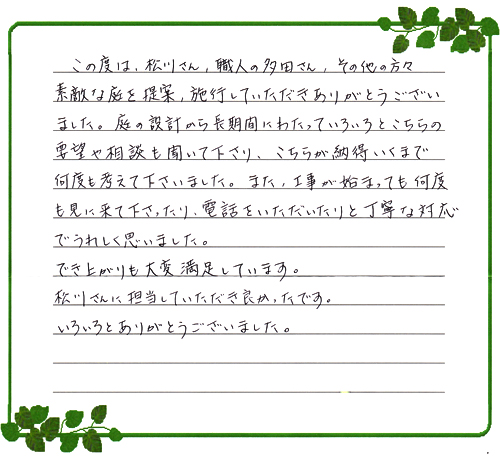 この度は、松川さん、職人の多田さん、その他の方々
素敵な庭を提案、施行していただきありがとうござい
ました。庭の設計から長期間にわたっていろいろとこちらの
要望や相談も聞いて下さり、こちらが納得いくまで
何度も考えて下さいました。また、工事が始まっても何度
も見に来て下さったり、電話をいただいたりと丁寧な対応
でうれしく思いました。
でき上がりも大変満足しています。
松川さんに担当していただき良かったです。
いろいろとありがとうございました。